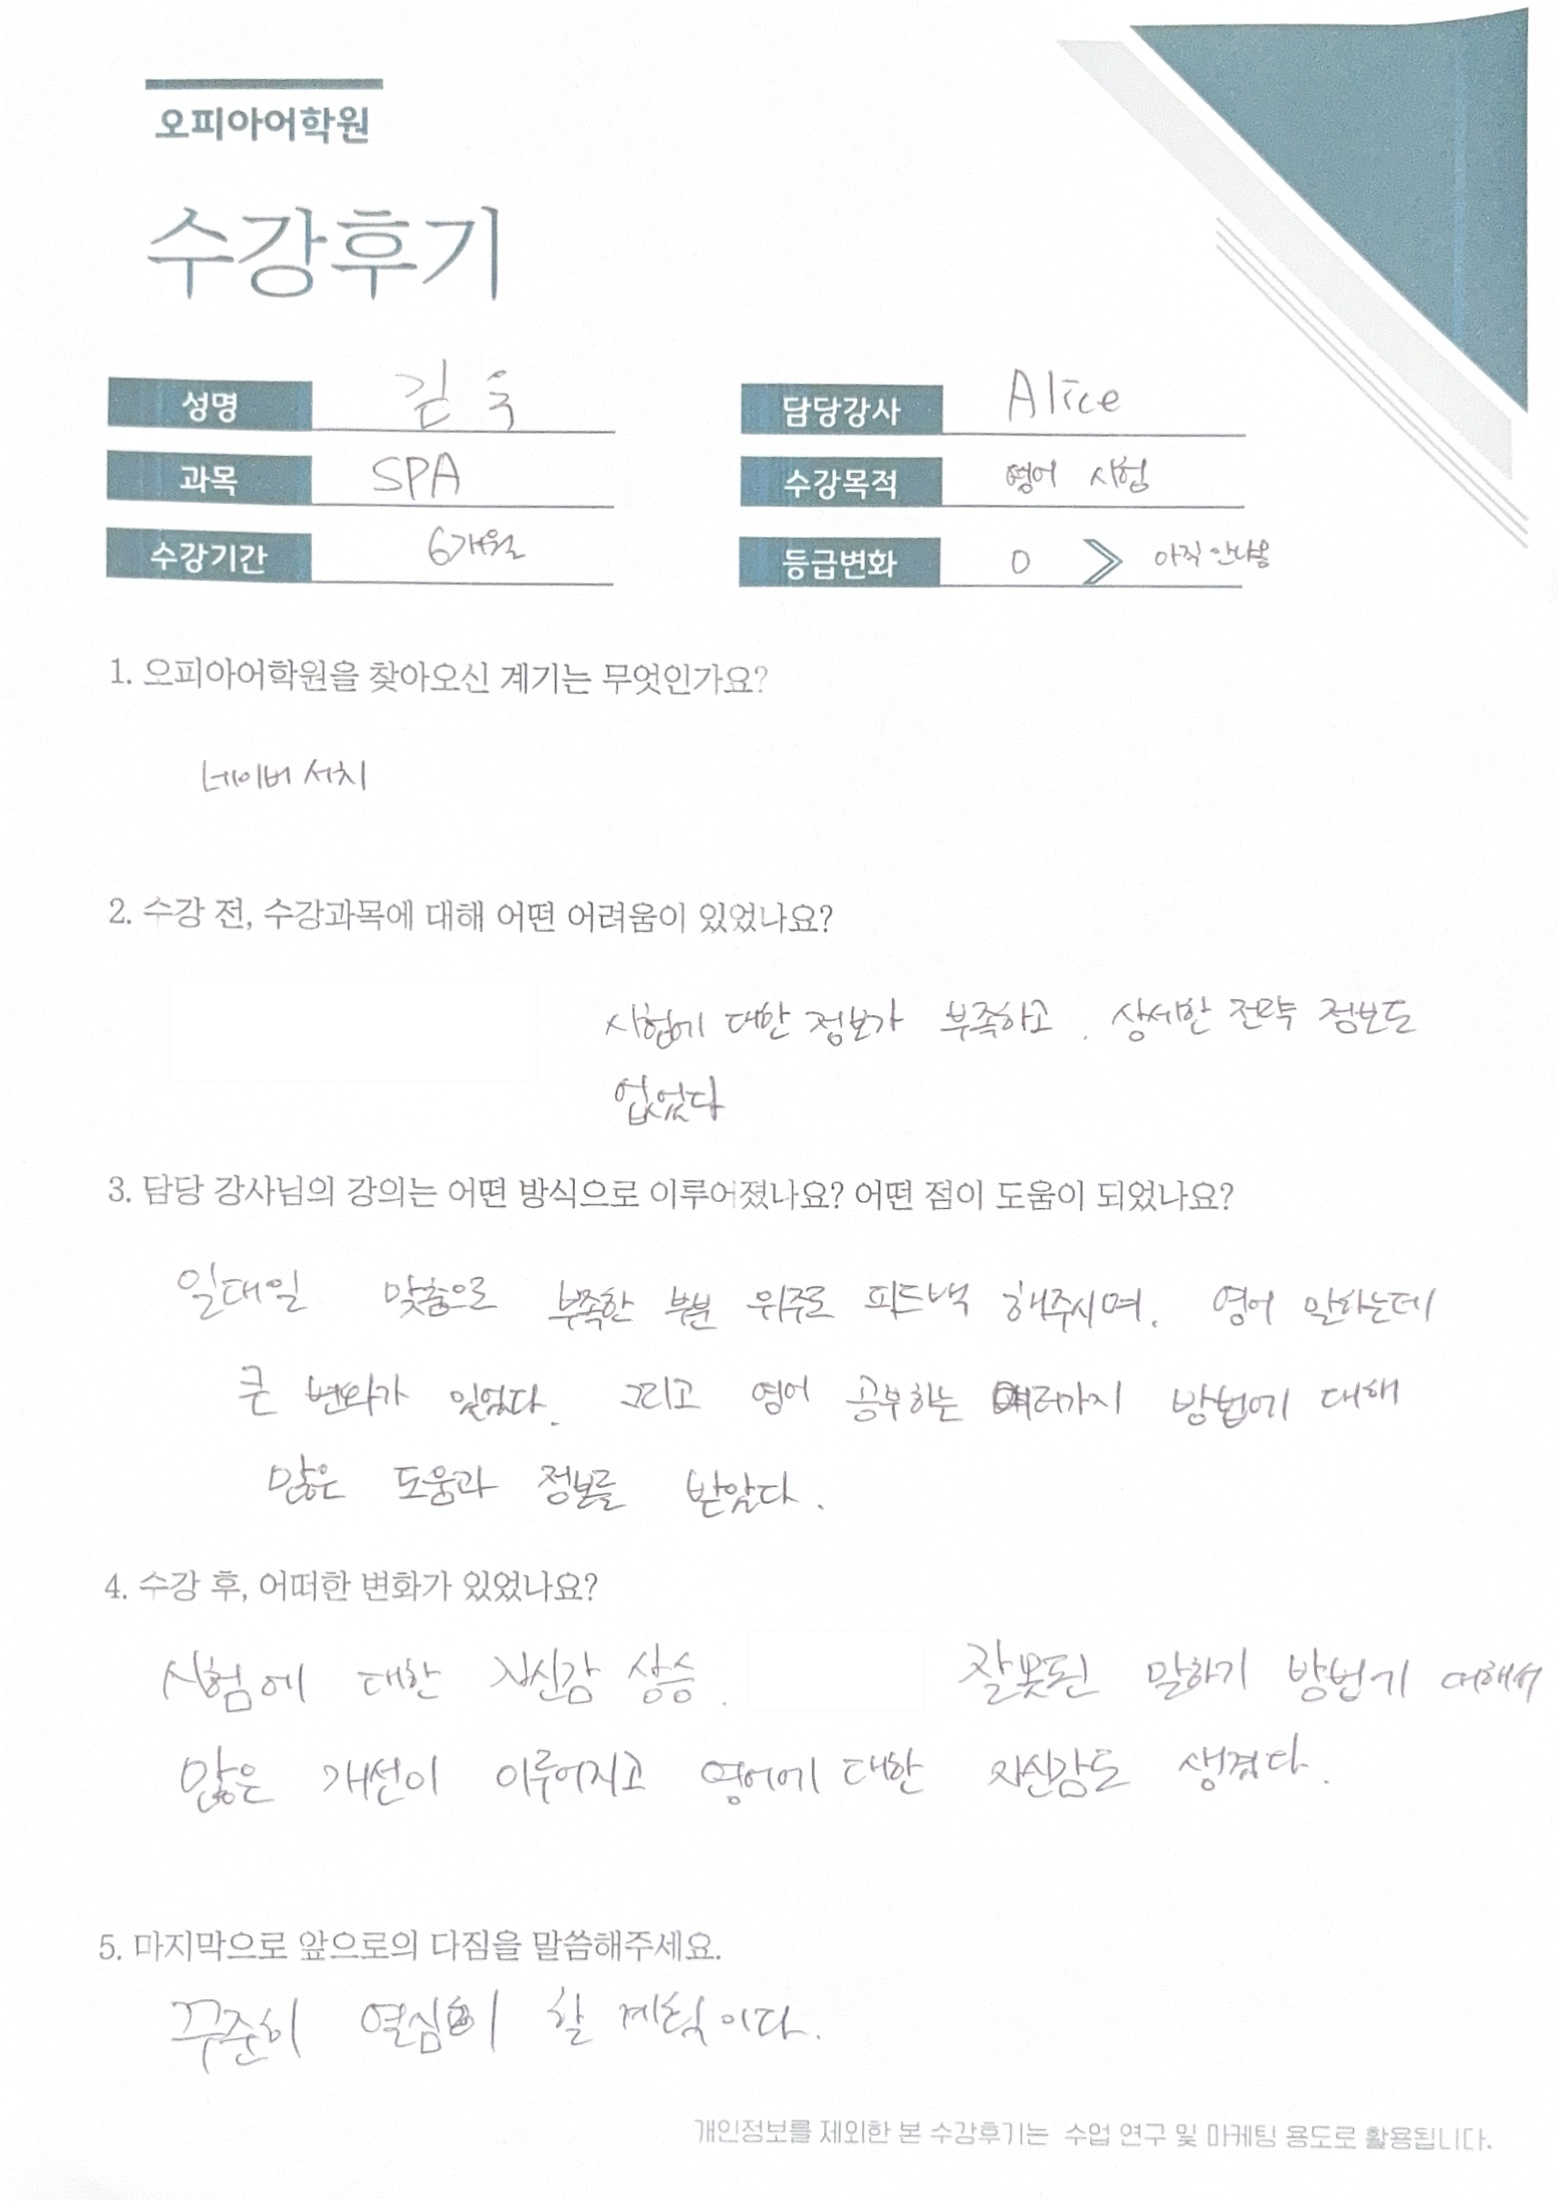 오피아어학원
수강후기
성명 김 욱 담당강사 Alice
과목 SPA 수강목적 영어 시험
수강기간 6개월 등급변화 0 아직 안나옴
1. 오피아어학원을 찾아오신 계기는 무엇인가요?
네이버 서치
2. 수강 전, 수강과목에 대해 어떤 어려움이 있었나요?
시험에 대한 정보가 부족하고. 상세한 전략 정보도
없었다
3. 담당 강사님의 강의는 어떤 방식으로 이루어졌나요? 어떤 점이 도움이 되었나요?
일대일 맞춤으로 부족한 부분 위주로 피드백 해주시며. 영어 말하는데
큰 변화가 있었다. 그리고 영어 공부하는 여러가지 방법에 대해
많은 도움과 정보를 받았다.
4. 수강 후, 어떠한 변화가 있었나요?
시험에 대한 자신감 상승. 잘못된 말하기 방법기 대해서
많은 개선이 이루어지고 영어에 대한 자신감도 생겼다.
5. 마지막으로 앞으로의 다짐을 말씀해주세요.
꾸준히 열심히 할 계획이다.
개인정보를 제외한 본 수강후기는 수업 연구 및 마케팅 용도로 활용됩니다.